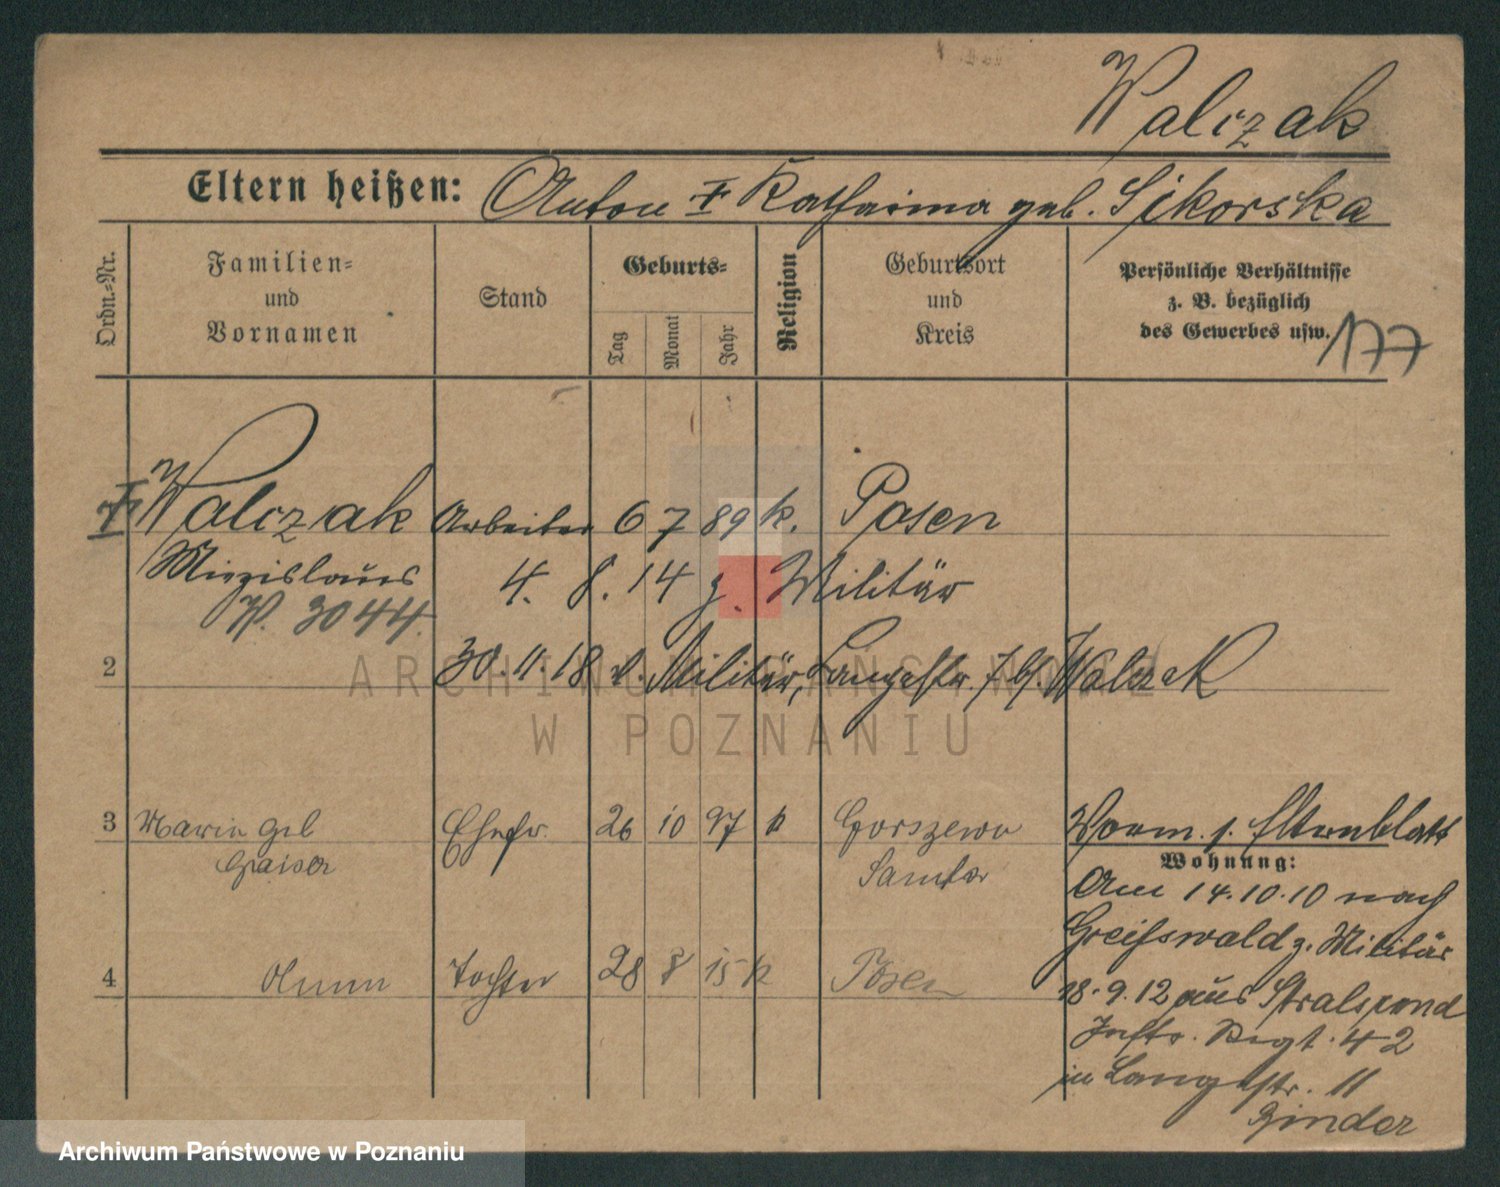 Walczak
Eltern heißen: Anton † Katharina geb. Sikorska
Ordn.-Nr.
Familien-
und
Vornamen
Stand
Geburts-
Tag
Monat
Jahr
Religion
Geburtsort
und
Kreis
Persönliche Verhältnisse
z. B. bezüglich
des Gewerbes usw.
177
Walczak Arbeiter 6 7 89 k. Posen
Miezislaus 4. 8. 14 z. Militär
W. 3044.
2 30. 11 18 v. Militär, Langestr. 7 bf. Walczak
3 Marie geb Ehefr. 26 10 97 k Gorszewo Vorm. s. Elternblatt
Gaiser Samter
Wohnung:
Am 14.10.10 nach
Greifswald z. Militär
4 Tochter 28 8 15 k Posen
18.9.12 aus Stralsund
Inftr. Regt. 42
in Langestr. 11
Binder
ARCHIWUM PAŃSTWOWE
W POZNANIU
Archiwum Państwowe w Poznaniu